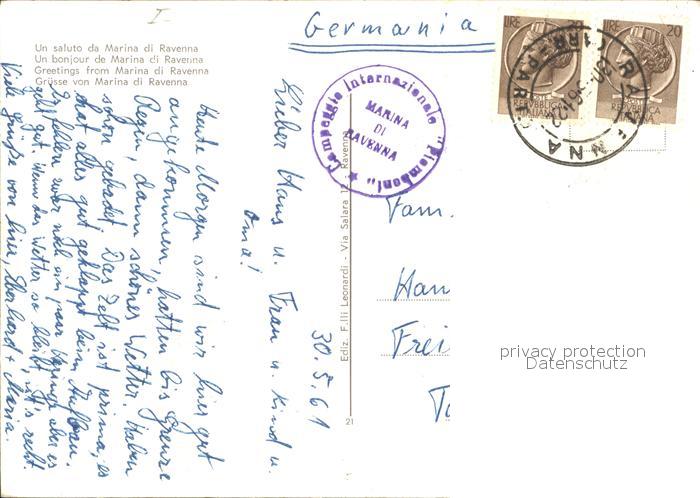 I
Germania
Un saluto da Marina di Ravenna
Un bonjour de Marina di Ravenna
Greetings from Marina di Ravenna
Grüsse von Marina di Ravenna
LIRE
20
REPVBBLICA
ITALIANA
LIRE 20
REPVBBLICA
ITALIANA
RAVENNA
Campeggio Internazionale "Piomboni"
MARINA
DI
RAVENNA
30.5.61
Lieber Hans u. Frau u. Kind u.
Oma!
Heute Morgen sind wir hier gut
angekommen, hatten bis Grenze
Regen, dann schönes Wetter. Haben
schon gebadet. Das Zelt ist prima, es
hat alles gut geklappt beim Aufbau.
Es fehlen zwar noch ein paar aber es
geht gut. Wenn das Wetter so bleibt, ist's recht.
Viele Grüße von hier, Eberhard + Maria.
Ediz. F.lli Leonardi - Via Salara 12 - Ravenna
21
Fam.
Han
Frei
privacy protection
Datenschutz